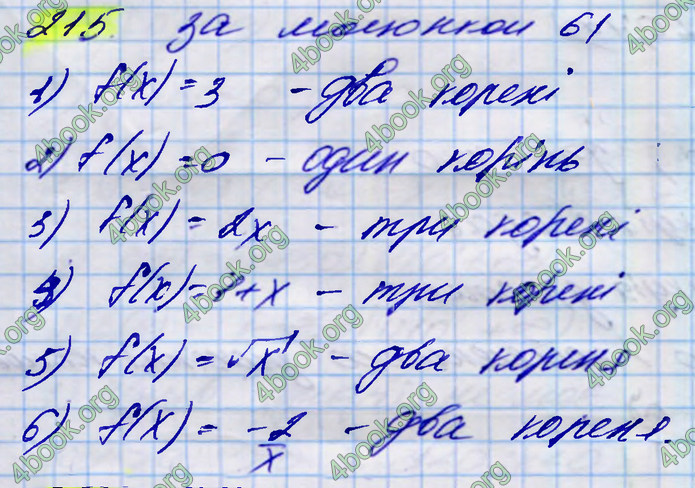 215. За малюнком 61
1) f(x) = 3 - два корені
2) f(x) = 0 - один корінь
3) f(x) = 2x - три корені
4) f(x) = + x - три корені
5) f(x) = √x - два кореня
6) f(x) = -2/x - два кореня.
4book.org